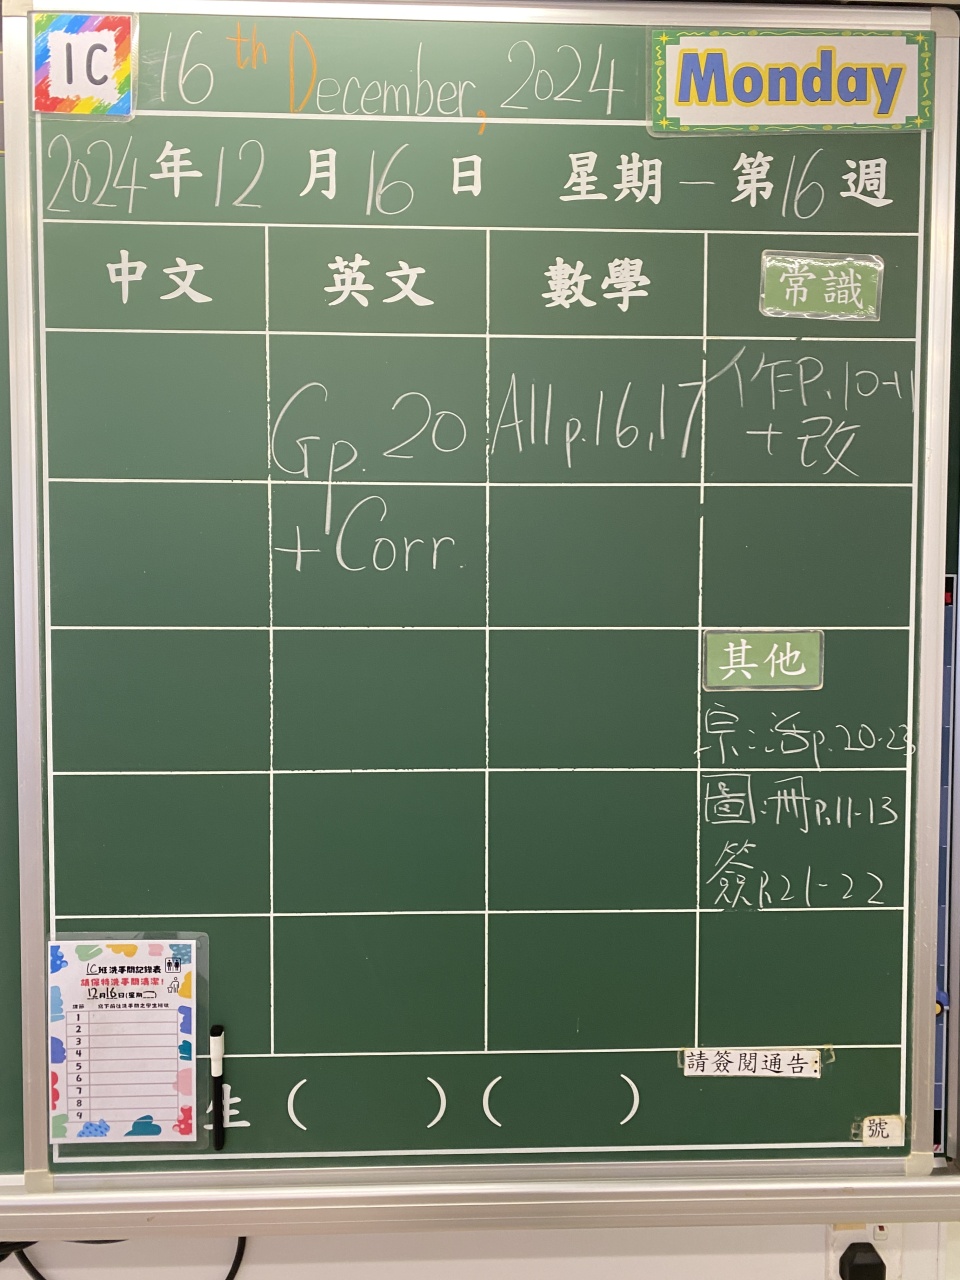 1C 16th December, 2024 Monday
2024年12月16日 星期一 第16週
中文 英文 數學 常識
Gp. 20 All p.16,17 作P.10-11
+改
+Corr.
其他
宗:活p.20-23
圖:冊P.11-13
簽P.21-22
1C班洗手間記錄表
請保持洗手間清潔!
12月16日(星期一)
1
2
3
4
5
6
7
8
9
請簽閱通告:
生 ( ) ( )
號